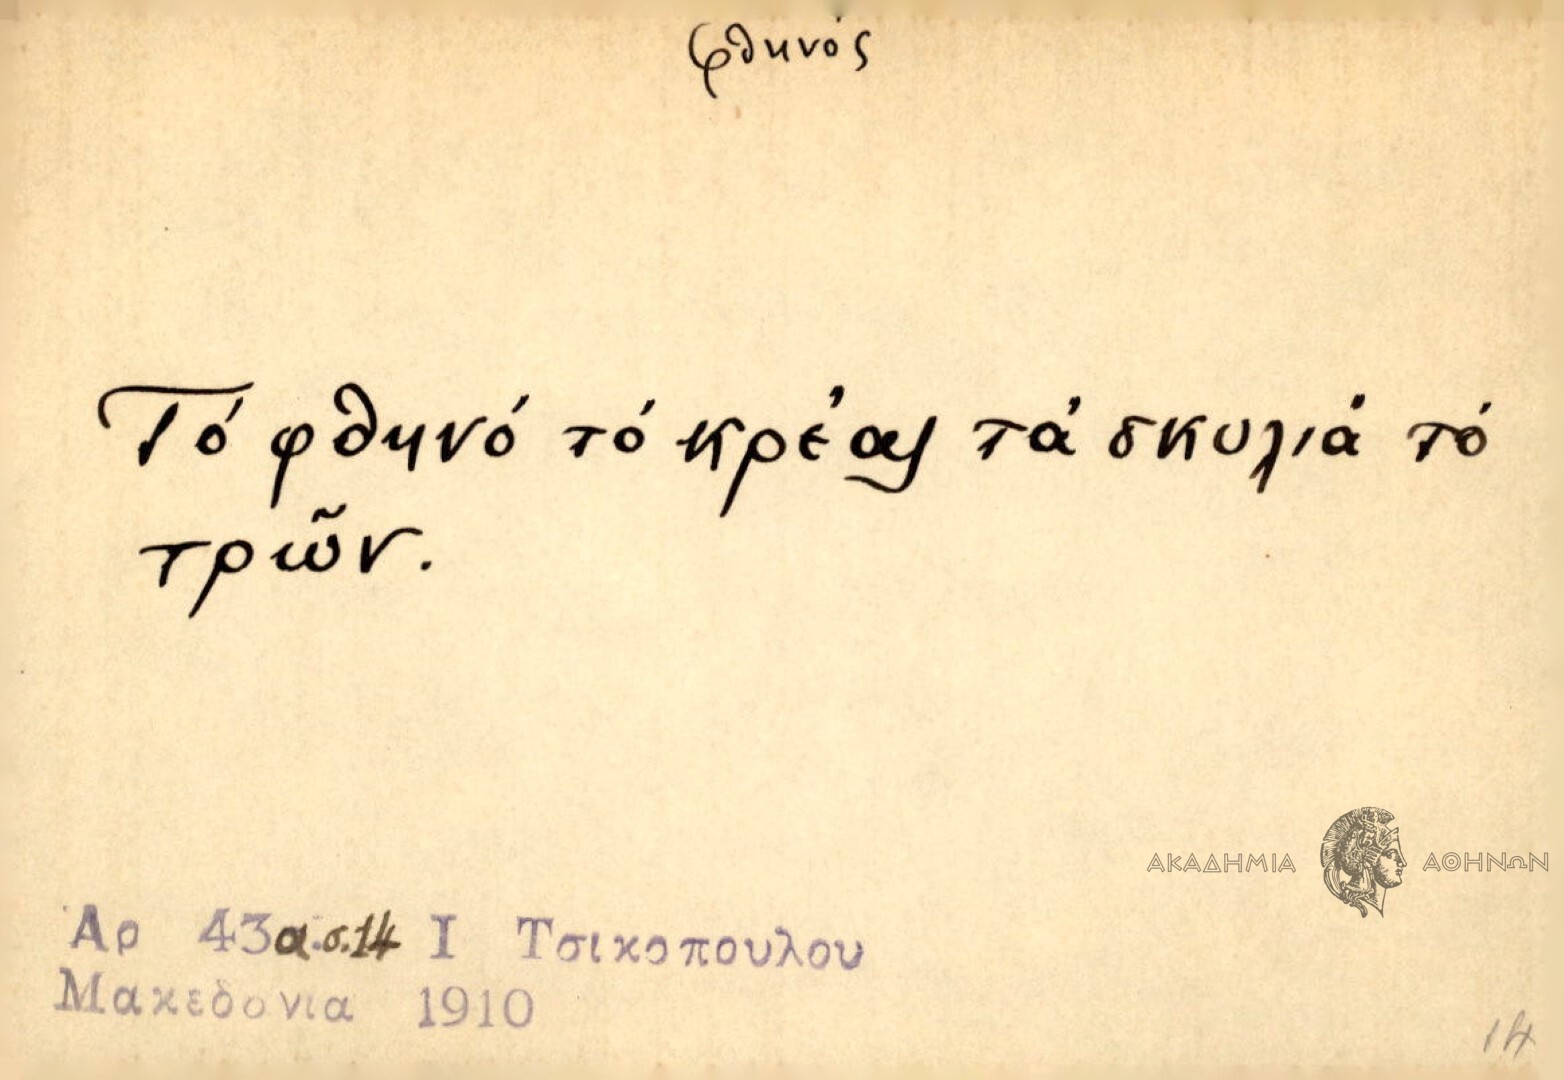 φθηνός
Τό φθηνό τό κρέας τά σκυλιά τό
τρῶν.
ΑΚΑΔΗΜΙΑ ΑΘΗΝΩΝ
Αρ 43α σ.14 Ι Τσικοπουλου
Μακεδονια 1910
14